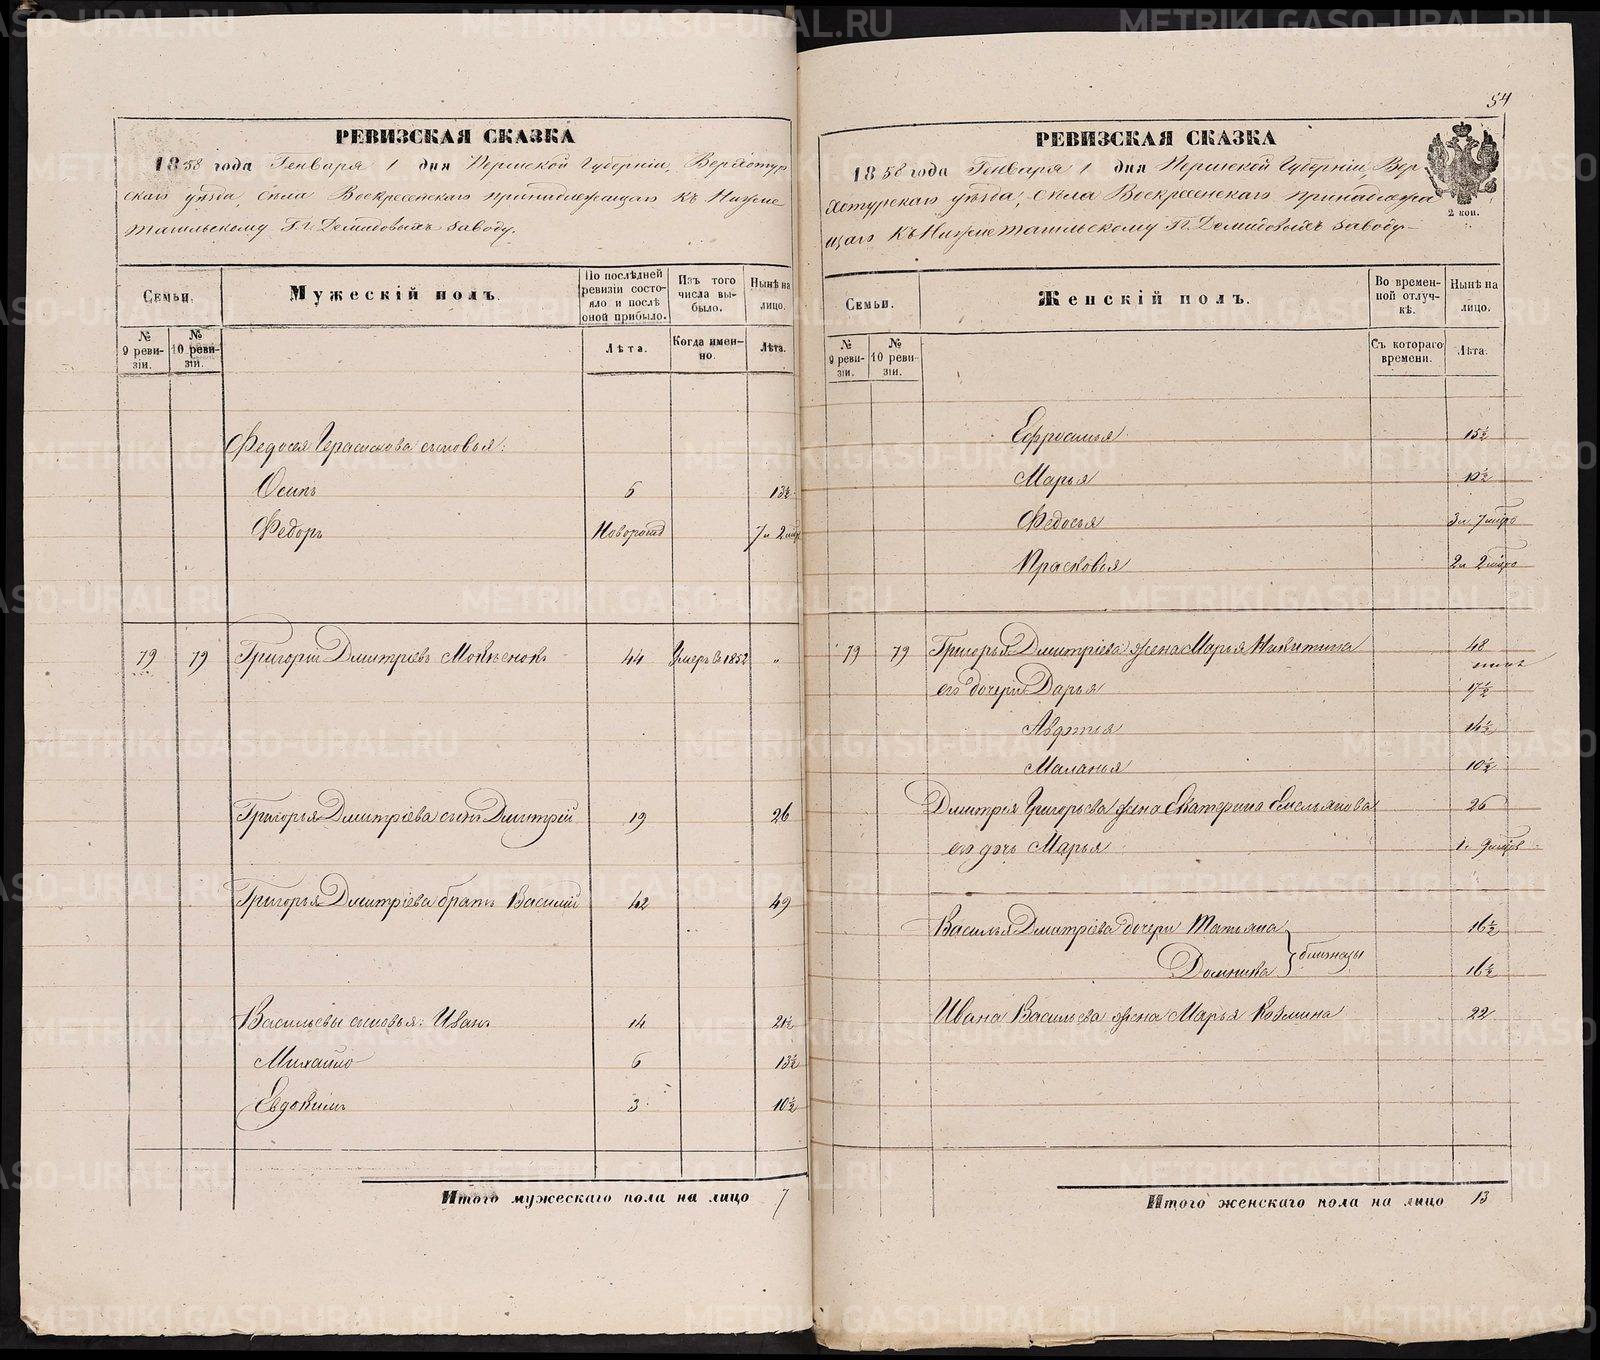 РЕВИЗСКАЯ СКАЗКА
1858 года Генваря 1 дня Пермской Губерніи, Верхотур
скаго уѣзда, Села Воскресенскаго принадлежащаго къ Нижне
тагильскому Гг. Демидовыхъ заводу.
Семьи.
Мужескій полъ.
По послѣдней ревизіи состояло и послѣ оной прибыло.
Изъ того числа выбыло.
Нынѣ на лицо.
№ 9 ревизіи.
№ 10 ревизіи.
Лѣта.
Когда именно.
Лѣта.
Федосея Герасимова сыновья:
Осипъ 6 13½
Федоръ Новорожд 7 и 2 мѣс
79 79 Григорій Дмитріевъ 44 Умеръ въ 1852 "
Григорья Дмитріева сынъ Дмитрій 19 26
Григорья Дмитріева братъ Василій 42 49
Васильевы сыновья: Иванъ 14 21½
Михайло 6 13½
Евдокимъ 3 10½
Итого мужескаго пола на лицо 7
54
РЕВИЗСКАЯ СКАЗКА
2 коп.
1858 года Генваря 1 дня Пермской Губерніи, Вер-
хотурскаго уѣзда, Села Воскресенскаго принадлежа
щаго къ Нижнетагильскому Гг. Демидовыхъ заводу
Семьи.
Женскій полъ.
Во временной отлучкѣ.
Нынѣ на лицо.
№ 9 ревизіи.
№ 10 ревизіи.
Съ котораго времени.
Лѣта.
Ефросинья 15½
Марья 10½
Федосья 3 и 7 мѣс
Прасковья 2 и 2 мѣс
79 79 Григорья Дмитріева жена Марья Никитина 48
его дочери Дарья 17½
Авдотья 14½
Маланья 10½
Дмитрея Григорьева жена Екатерина Емельянова 26
его дочь Марья 1 и 9 мѣс
Василья Дмитріева дочери Татьяна 16½
близнецы
Домника 16½
Ивана Васильева жена Марья Козмина 22
Итого женскаго пола на лицо 13
METRIKI.GASO-URAL.RU